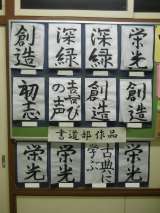 創造
深緑
深緑
栄光
初志
喜び
の声
創造
創造
書道部作品
栄光
栄光
古典に
学ぶ
栄光